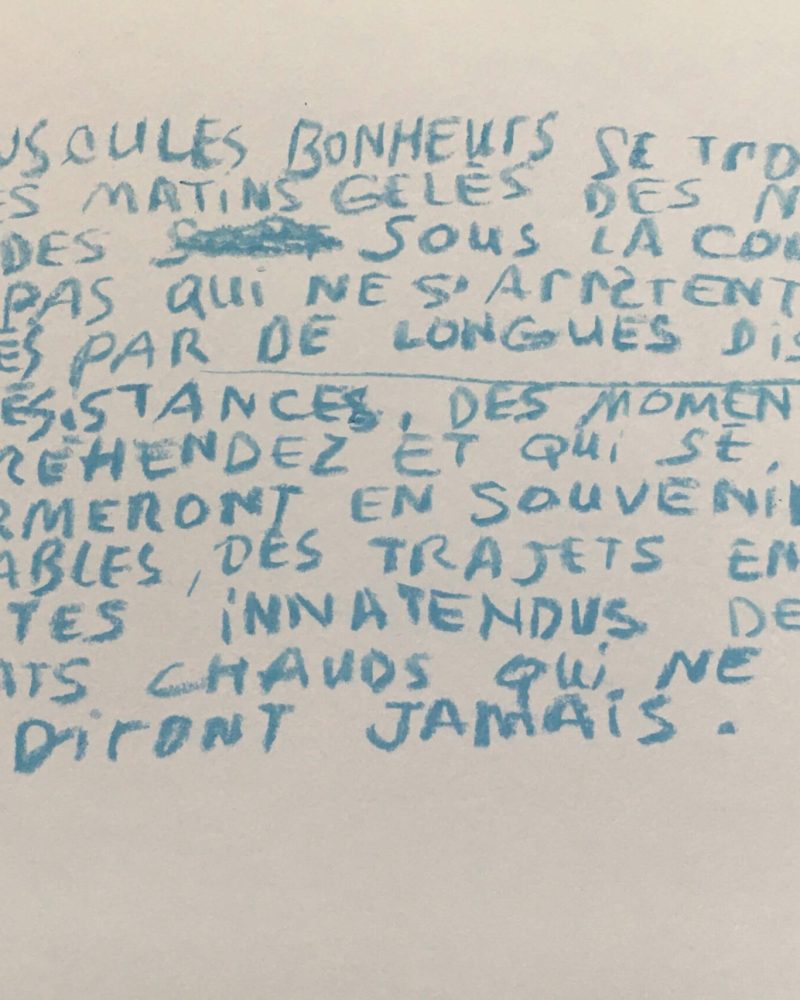 USCULES BONHEURS SE TRO
ES MATINS GELÉS DES N
DES SOUS LA COU
PAS QUI NE S'ARRÊTENT
ES PAR DE LONGUES DIS
ÉSISTANCES, DES MOMENT
RÉHENDEZ ET QUI SE
RMERONT EN SOUVENIR
ABLES, DES TRAJETS EN
TES INNATENDUS DE
ATS CHAUDS QUI NE
DIRONT JAMAIS.